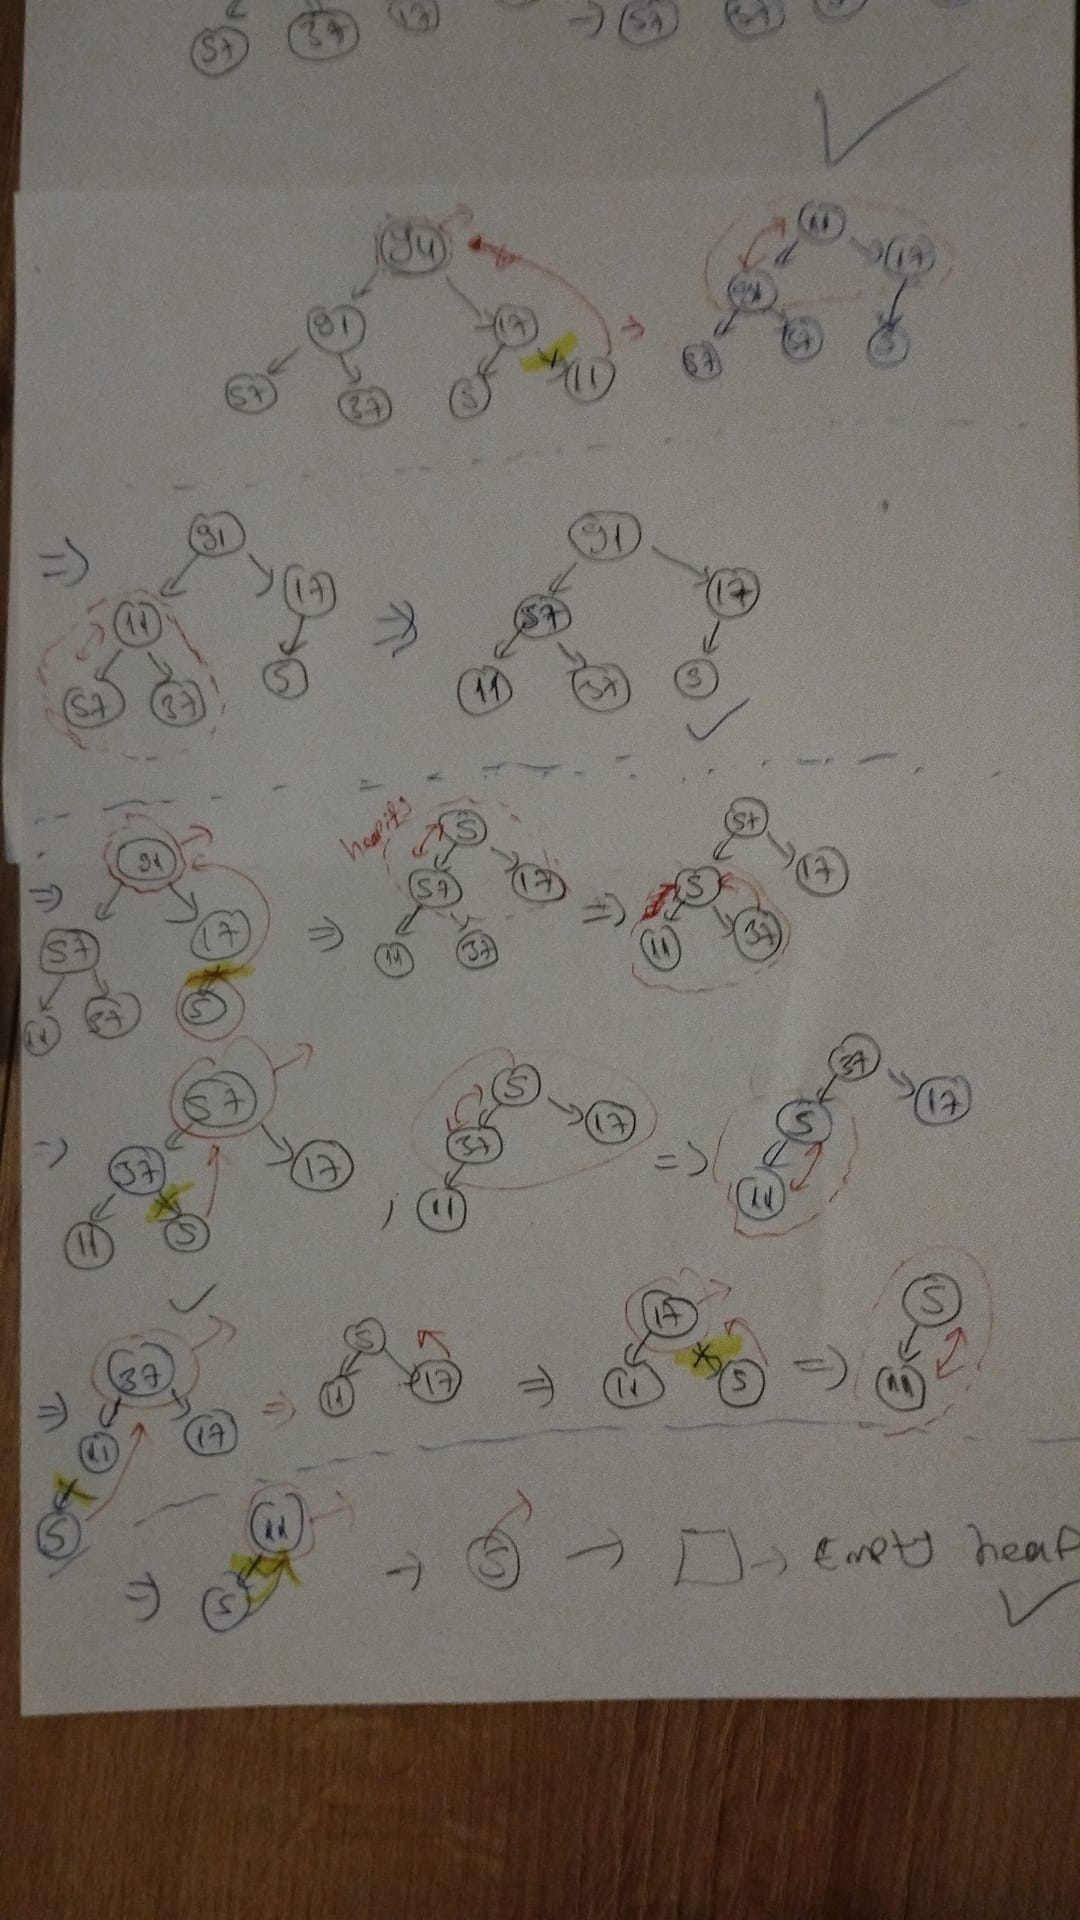 57 37 17 => 57 37
94
91 17
57 37 5 11
=> 11
94 17
57 37 5
=> 91
11 17
57 37 5
=> 91
57 17
11 37 5
=> 91
57 17
11 37 5
=> heapify 5
57 17
11 37
=> 57
5 17
11 37
=> 57
37 17
11 5
; 5
37 17
11
=> 37
5 17
11
=> 37
11 17
5
=> 5
11 17
=> 17
11 5
=> 5
11
=> 11
5
-> 5 -> □ -> Empty heap